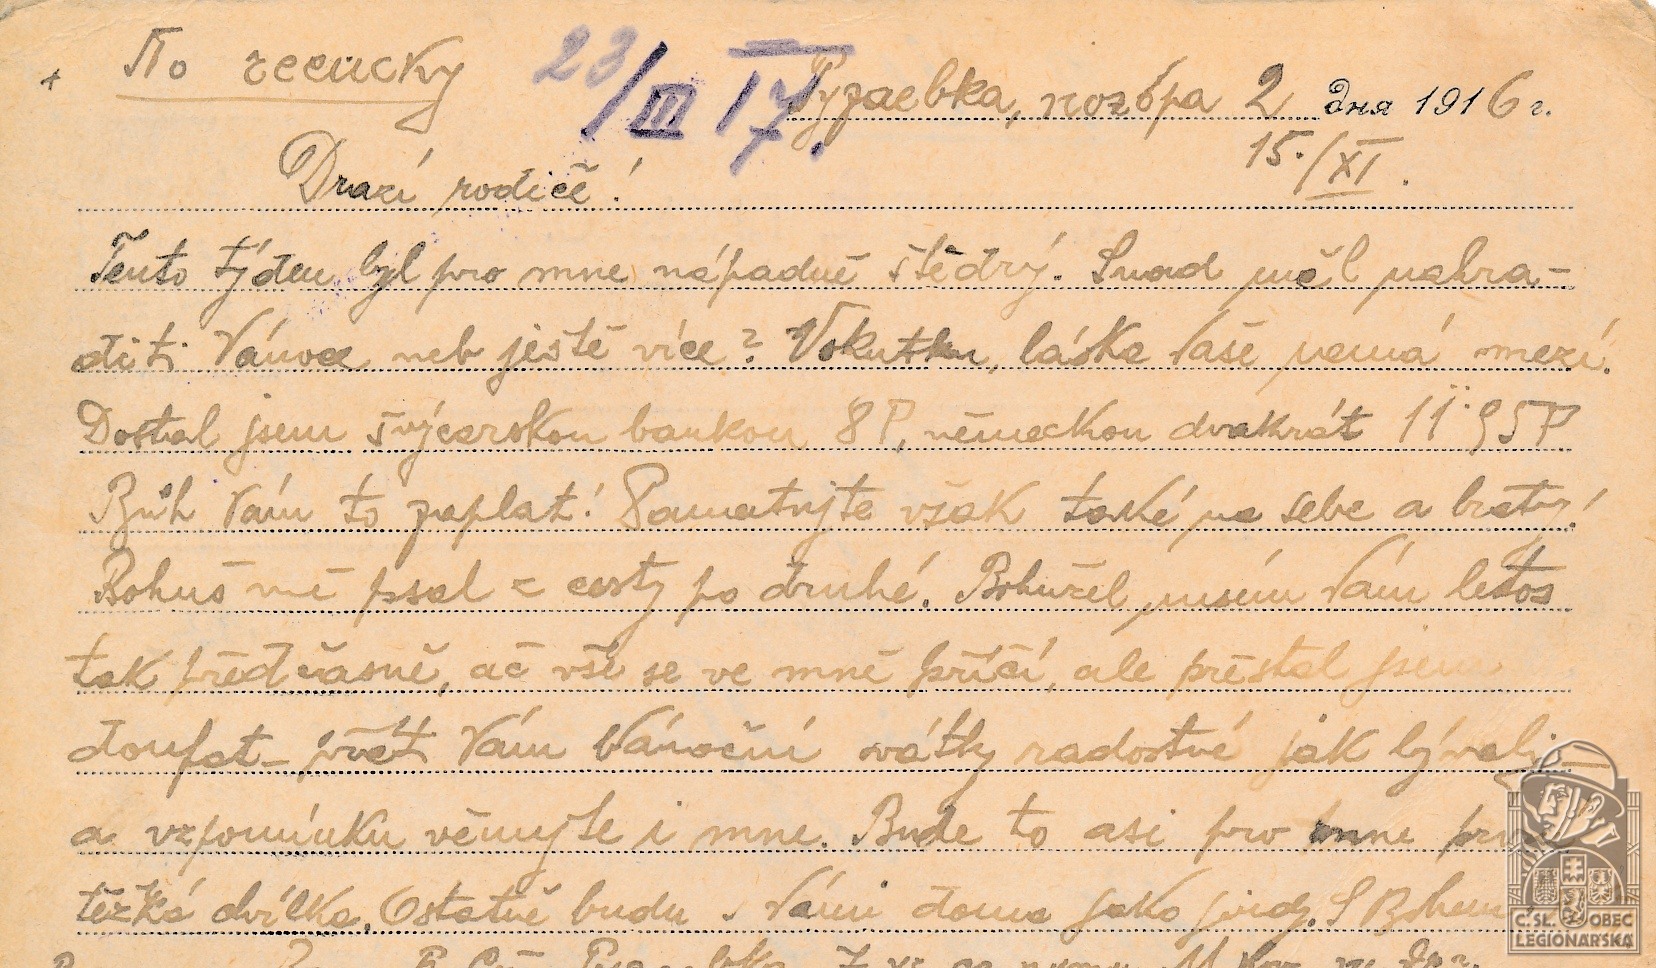 + По чешски 23/III 17. Рузаевка, нозбра 2 дня 1916 г.
15./XI.
Drazí rodiče!
Tento týden byl pro mne nápadně štědrý. Snad měl nahra-
diti Vánoce neb ještě více? Vskutku, láska Vaše nemá mezí.
Dostal jsem švýcarskou bankou 8 P, německou dvakrát 11·95 P
Bůh Vám to zaplať! Pamatujte však také na sebe a bratry!
Bohuš mě psal z cesty po druhé. Bohužel musím Vám letos
tak předčasně, ač vše se ve mně příčí, ale přestal jsem
doufat – přát Vám Vánoční svátky radostné jak bývaly
a vzpomínku věnujte i mne. Bude to asi pro mne prvá
těžká chvílka. Ostatně budu s Vámi doma jako jindy. S Bohem